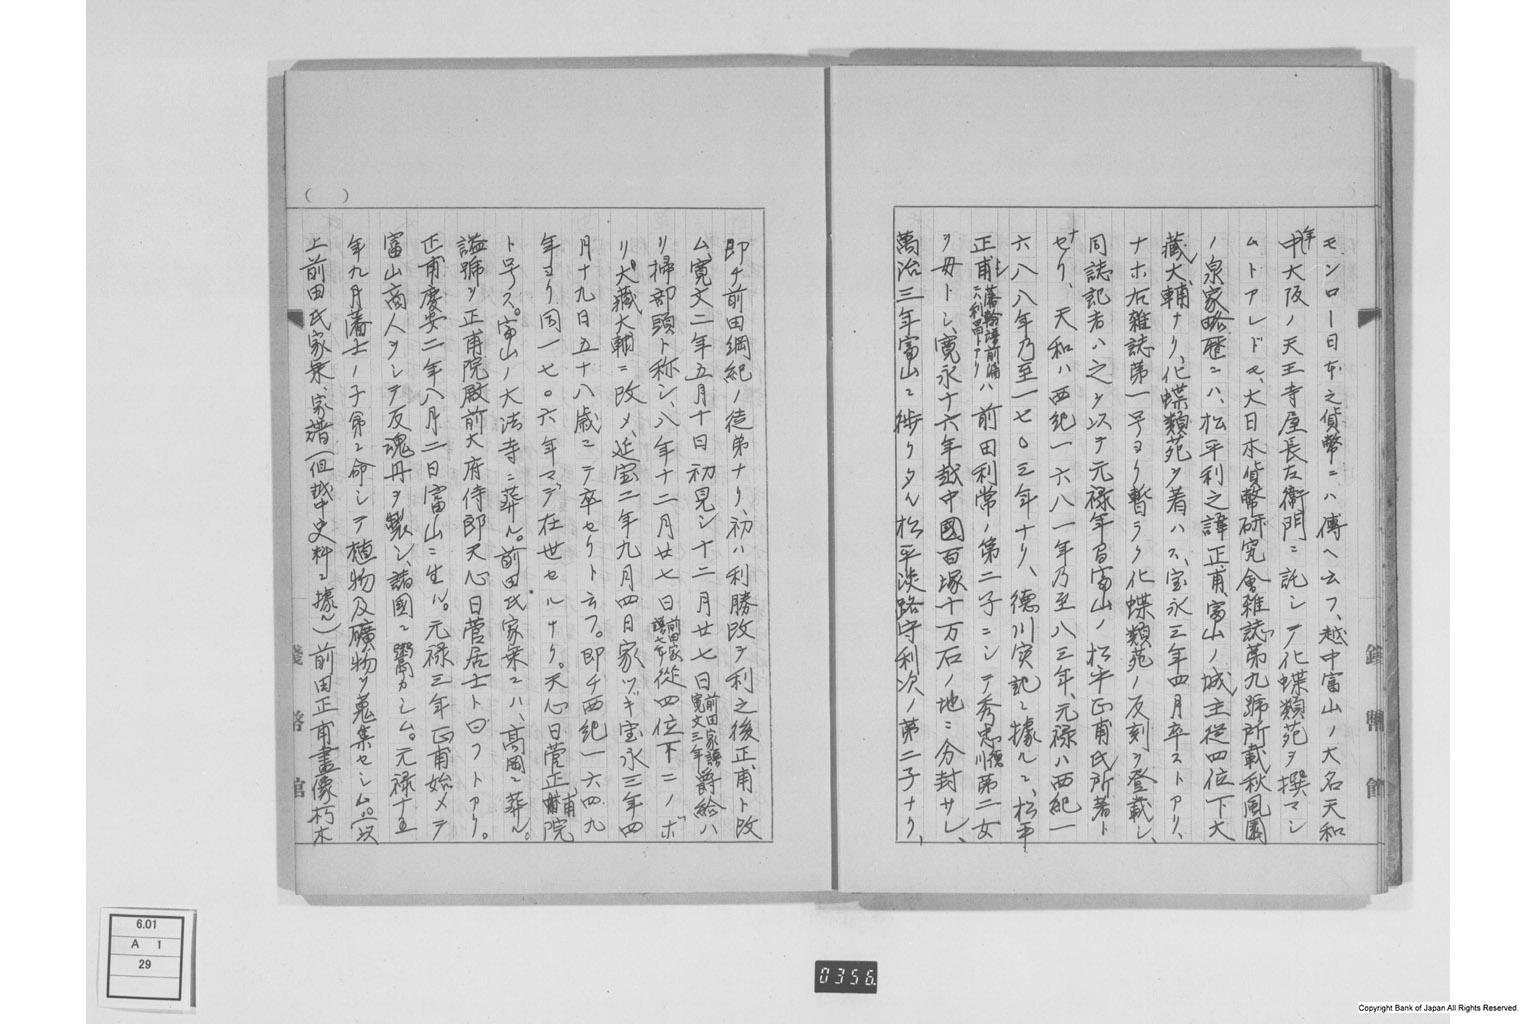 モンロー日本之貨幣ニハ傳ヘ云フ、越中富山ノ大名天和
年中大阪ノ天王寺屋長左衛門ニ託シテ化蝶類苑ヲ撰マシ
ムトアレドモ、大日本貨幣研究會雑誌第九號所載秋風園
ノ泉家略歴ニハ、松平利之諱正甫、富山ノ城主從四位下大
藏大輔ナリ、化蝶類苑ヲ著ハス、宝永三年四月卒ストアリ、
ナホ右雑誌第一号ヨリ暫ラク化蝶類苑ノ反刻ヲ登載シ、
同誌記者ハ之ヲ以テ元禄年間富山ノ松平正甫氏所著ト
ナセリ、天和ハ西紀一六八一年乃至八三年、元禄ハ西紀一
六八八年乃至一七〇三年ナリ、德川実記ニ據ルニ、松平
正甫ハ前田利常ノ第二子ニシテ秀忠德川第二女
ヲ母トシ、寛永十六年越中國百塚十万石ノ地ニ分封サレ、
萬治三年富山ニ徙リタル松平淡路守利次ノ第二子ナリ、
即チ前田綱紀ノ徒弟ナリ、初ハ利勝改ヲ利之後正甫ト改
ム寛文二年五月十日初見シ十二月廿七日前田家譜寛文三年爵給ハ
リ掃部頭ト称シ、八年十二月廿七日前田家譜七年從四位下ニノボ
リ大藏大輔ニ改メ延宝二年九月四日家ヅキ宝永三年四
月十九日五十八歳ニテ卒セリト云フ。即チ西紀一六四九
年ヨリ同一七〇六年マデ在世セルナリ。天心日菅正甫院
ト号ス。富山ノ大法寺ニ葬ル。前田氏家乗ニハ、高岡ニ葬ル。
諡號ヲ正甫院殿前大府侍郎天心日菅居士ト曰フトアリ。
正甫慶安二年八月二日富山ニ生ル。元禄三年正甫始メテ
富山商人ヲシテ反魂丹ヲ製シ、諸國ニ鬻カシム。元禄十五
年九月藩士ノ子弟ニ命シテ植物及礦物ヲ蒐集セシム。（以
上前田氏家乗、家譜（但越中史料ニ據ル）前田正甫畫像朽木
錢幣館
6.01
A 1
29
0356
Copyright Bank of Japan All Rights Reserved.